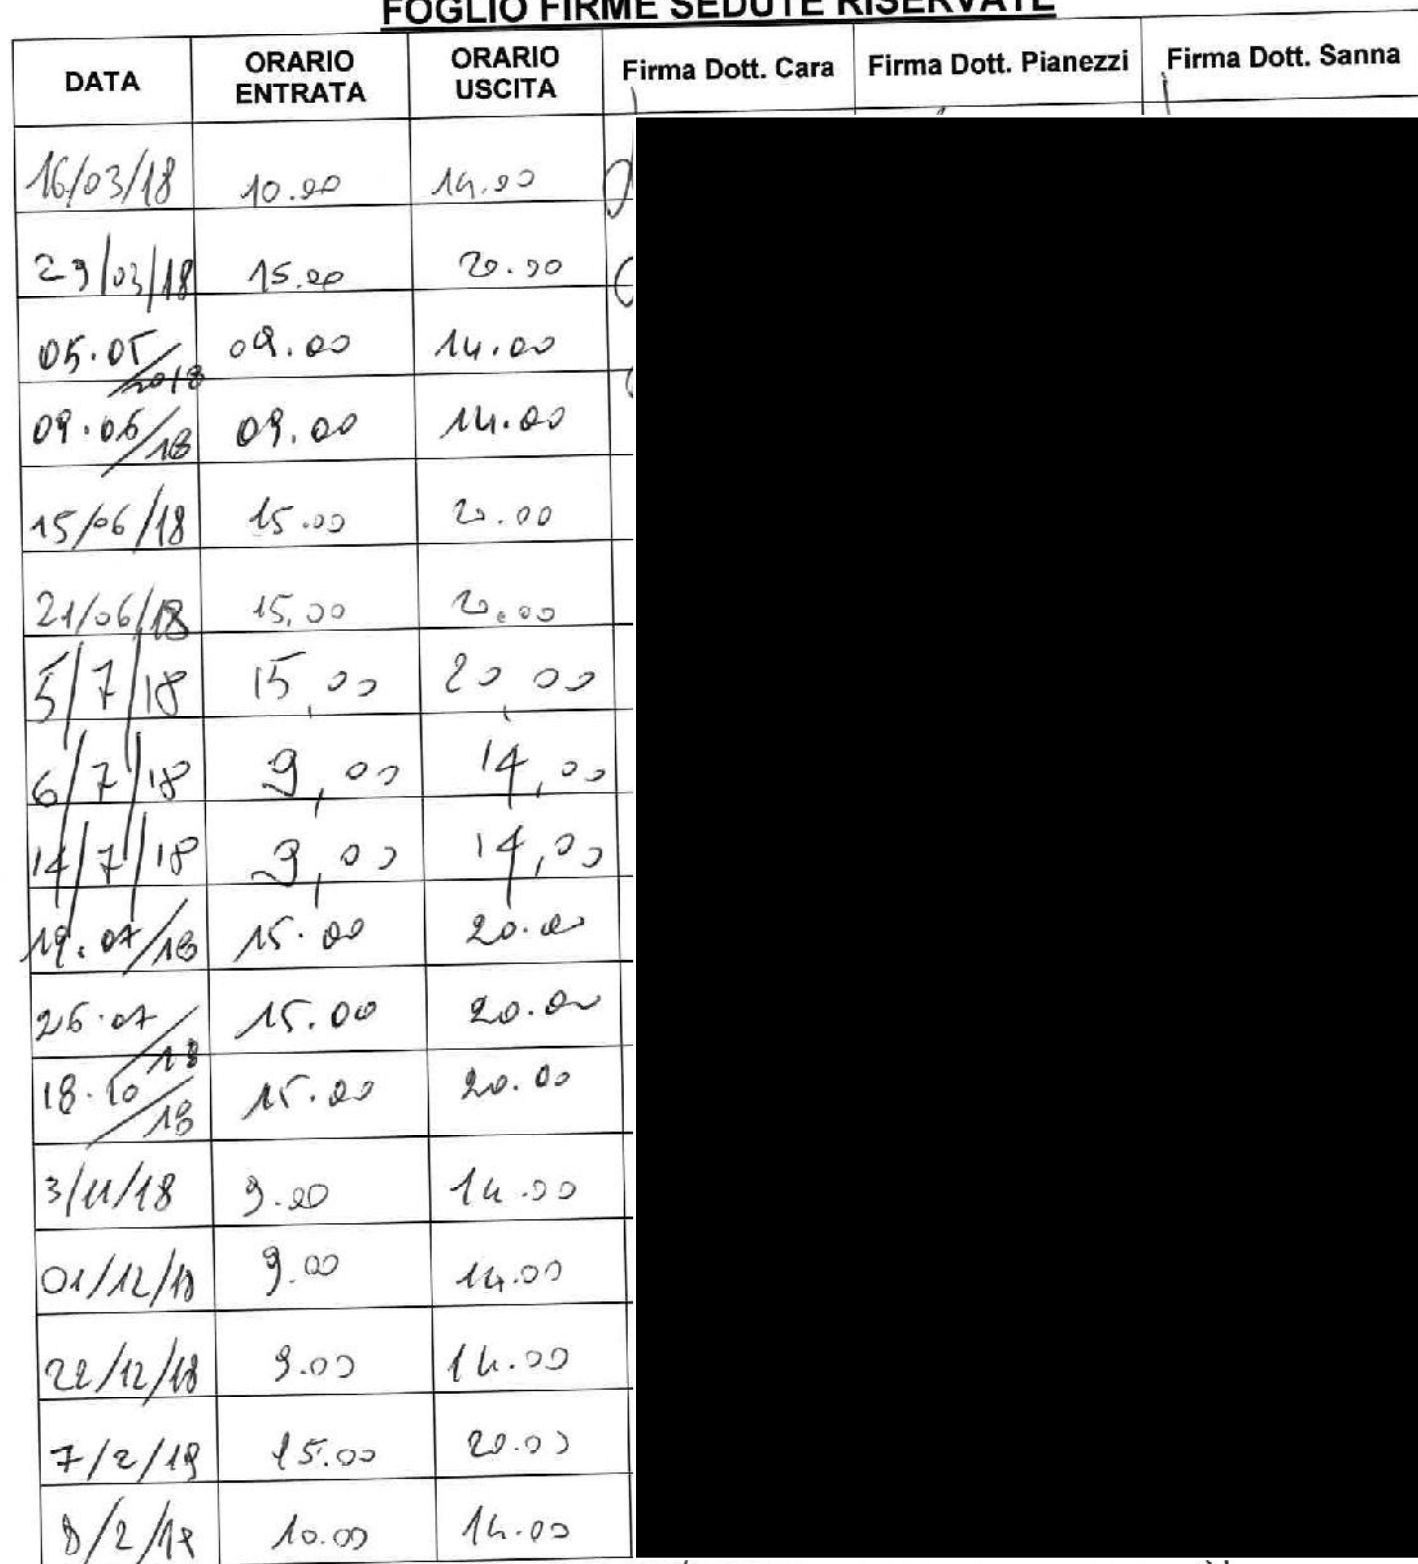 FOGLIO FIRME SEDUTE RISERVATE
DATA ORARIO ENTRATA ORARIO USCITA Firma Dott. Cara Firma Dott. Pianezzi Firma Dott. Sanna
16/03/18 10.00 14.00
29/03/18 15.00 20.00
05.05/2018 09.00 14.00
09.06/18 09.00 14.00
15/06/18 15.00 20.00
21/06/18 15,00 20.00
5/7/18 15,00 20,00
6/7/18 9,00 14,00
14/7/18 9,00 14,00
19.07/18 15.00 20.00
26.07/18 15.00 20.00
18.10/18 15.00 20.00
3/11/18 9.00 14.00
01/12/18 9.00 14.00
22/12/18 9.00 14.00
7/2/19 15.00 20.00
8/2/19 10.00 14.00